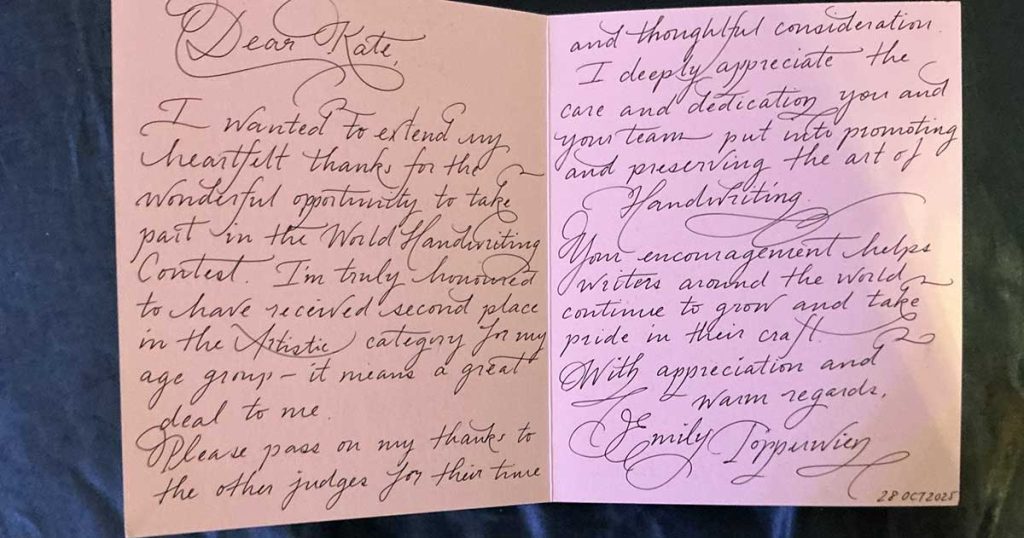 Dear Kate,
I wanted to extend my
heartfelt thanks for the
wonderful opportunity to take
part in the World Handwriting
Contest. I'm truly honoured
to have received second place
in the Artistic category for my
age group – it means a great
deal to me.
Please pass on my thanks to
the other judges for their time
and thoughtful consideration.
I deeply appreciate the
care and dedication you and
your team put into promoting
and preserving the art of
Handwriting.
Your encouragement helps
writers around the world
continue to grow and take
pride in their craft.
With appreciation and
warm regards,
Emily Topperwien
28 OCT 2025